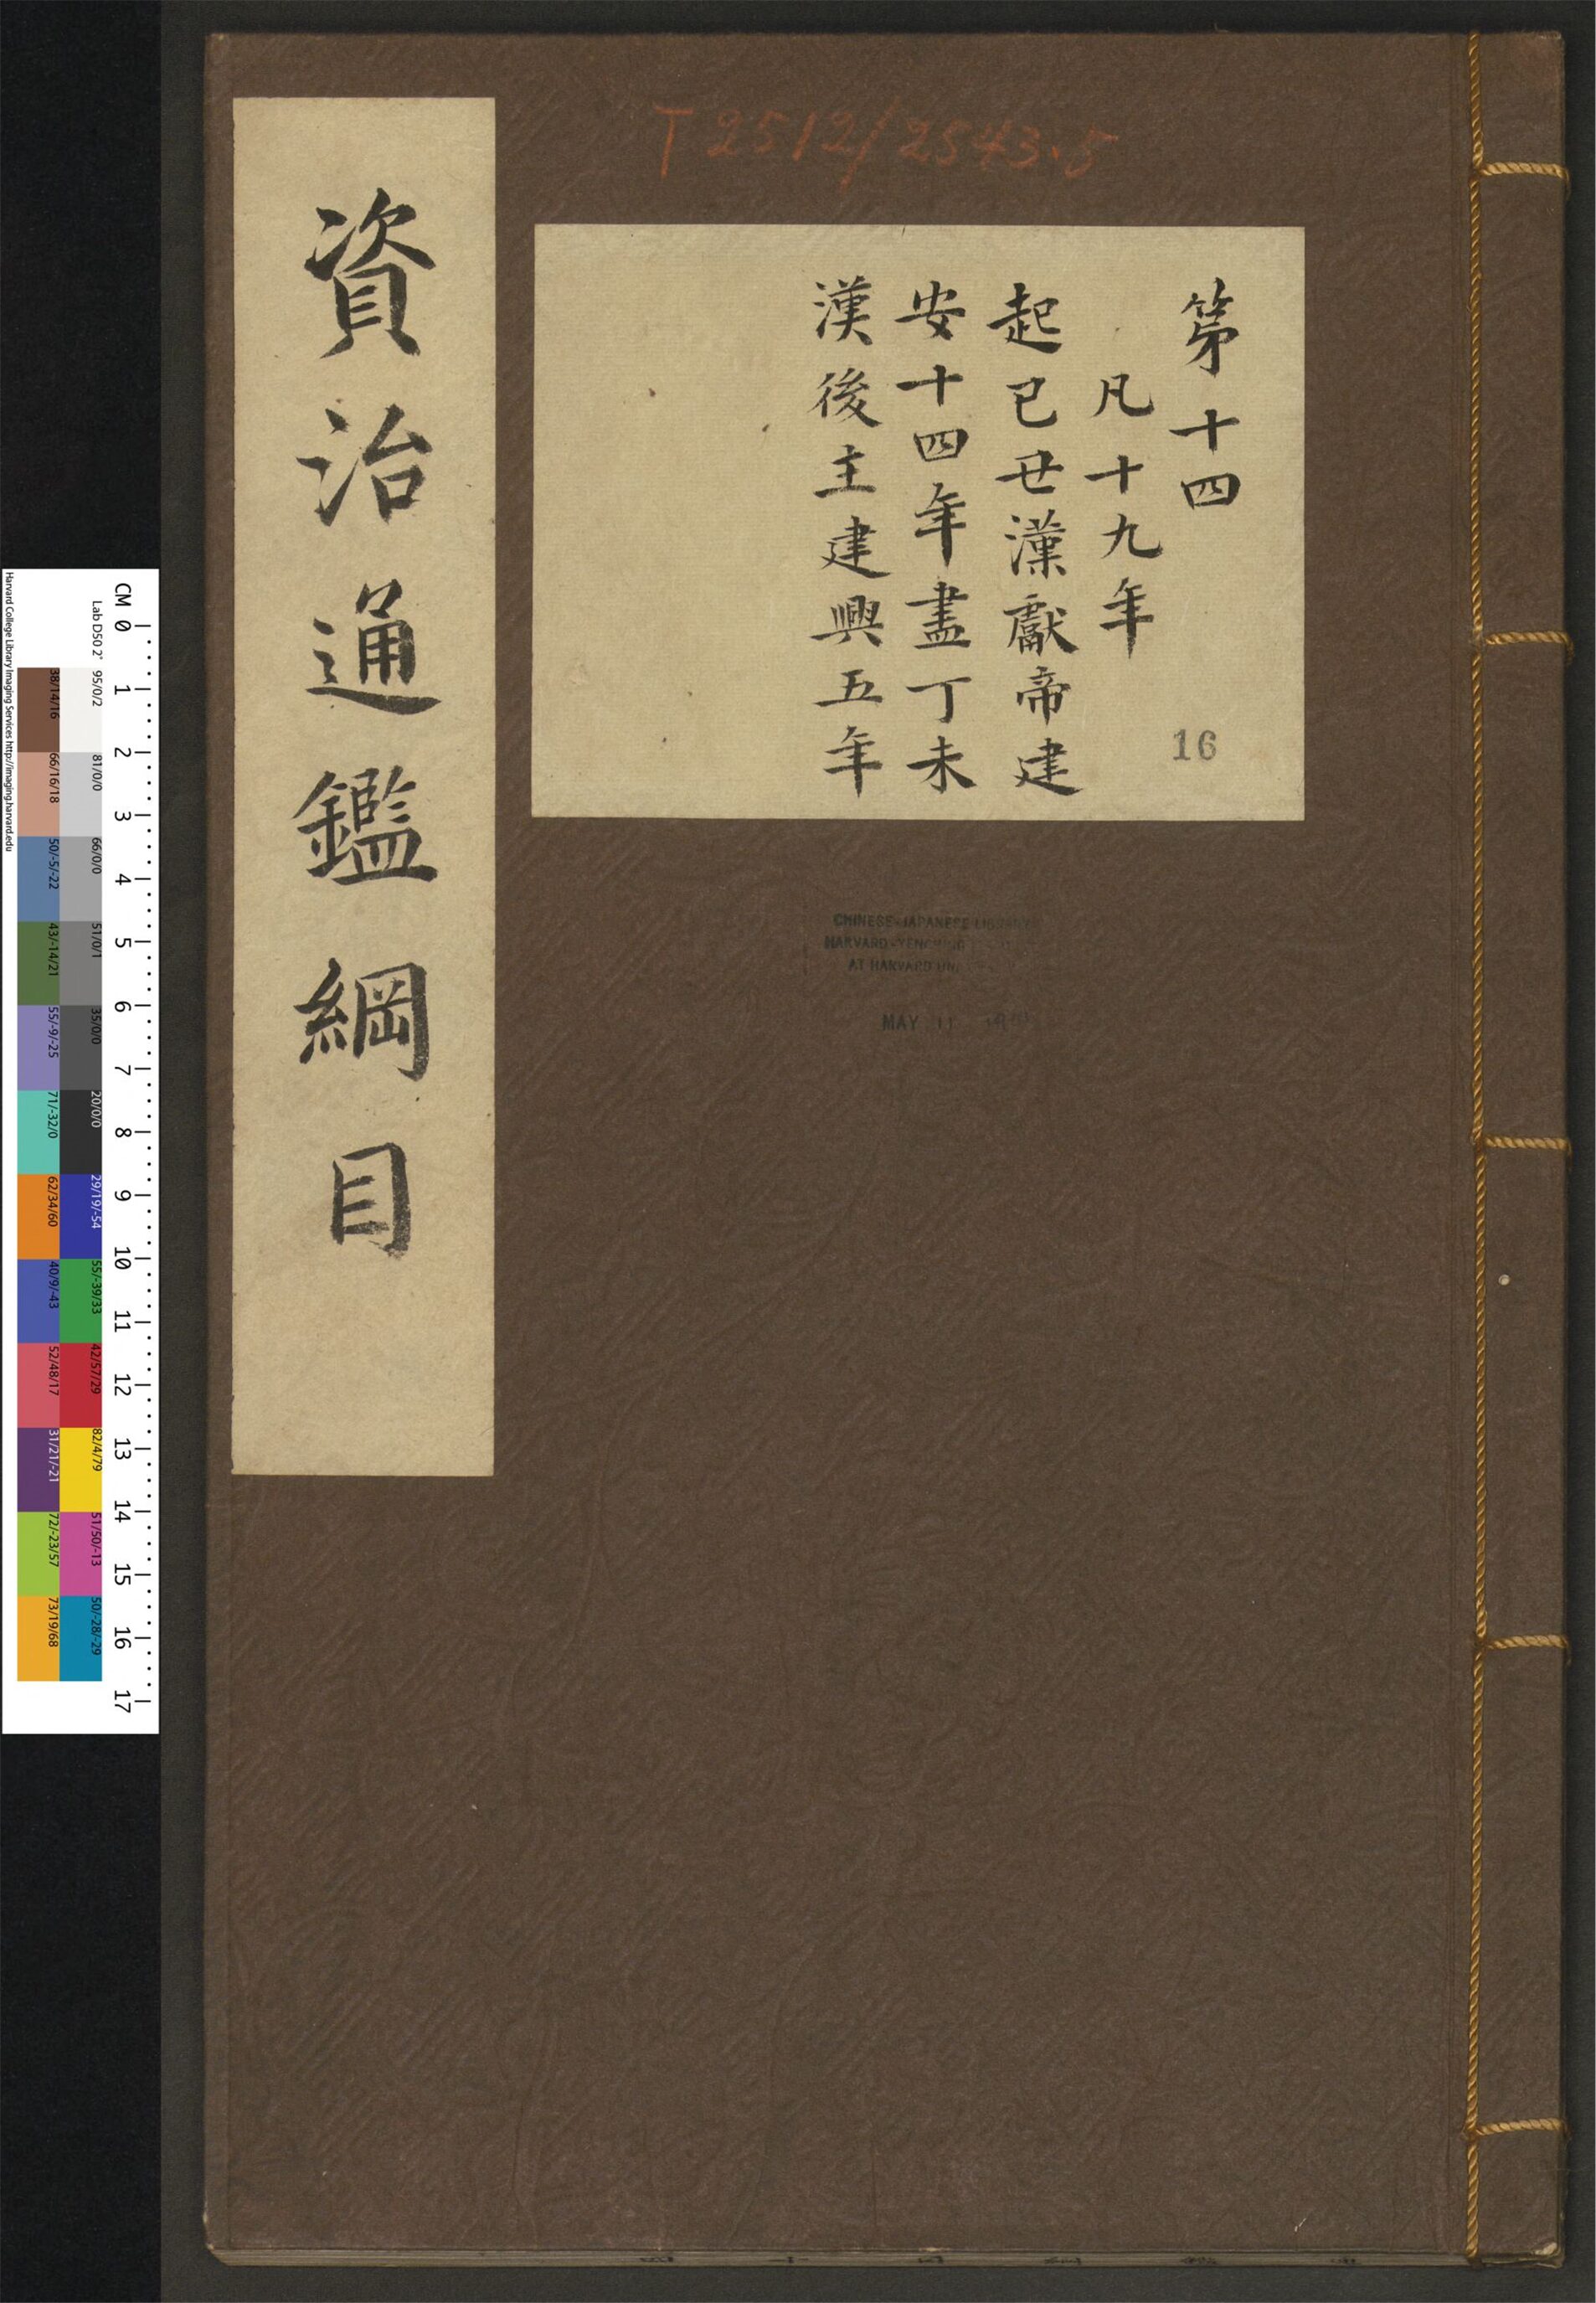 T2512/2543.5
第十四
凡十九年
起已丑漢獻帝建
安十四年盡丁未
漢後主建興五年
16
資治通鑑綱目
CHINESE-JAPANESE LIBRARY
HARVARD-YENCHING
AT HARVARD
MAY 11
CM 0 1 2 3 4 5 6 7 8 9 10 11 12 13 14 15 16 17
Lab D50 2° 95/0/2 81/0/0 66/0/0 51/0/1 35/0/0 20/0/0 29/19/-54 55/-39/33 42/57/29 82/4/79 51/50/-13 50/-28/-29
38/14/16 66/16/18 50/-5/-22 43/-14/21 55/-9/-25 71/-32/0 62/34/60 40/9/-43 52/48/17 31/21/-21 72/-23/57 73/19/68
Harvard College Library Imaging Services http://imaging.harvard.edu